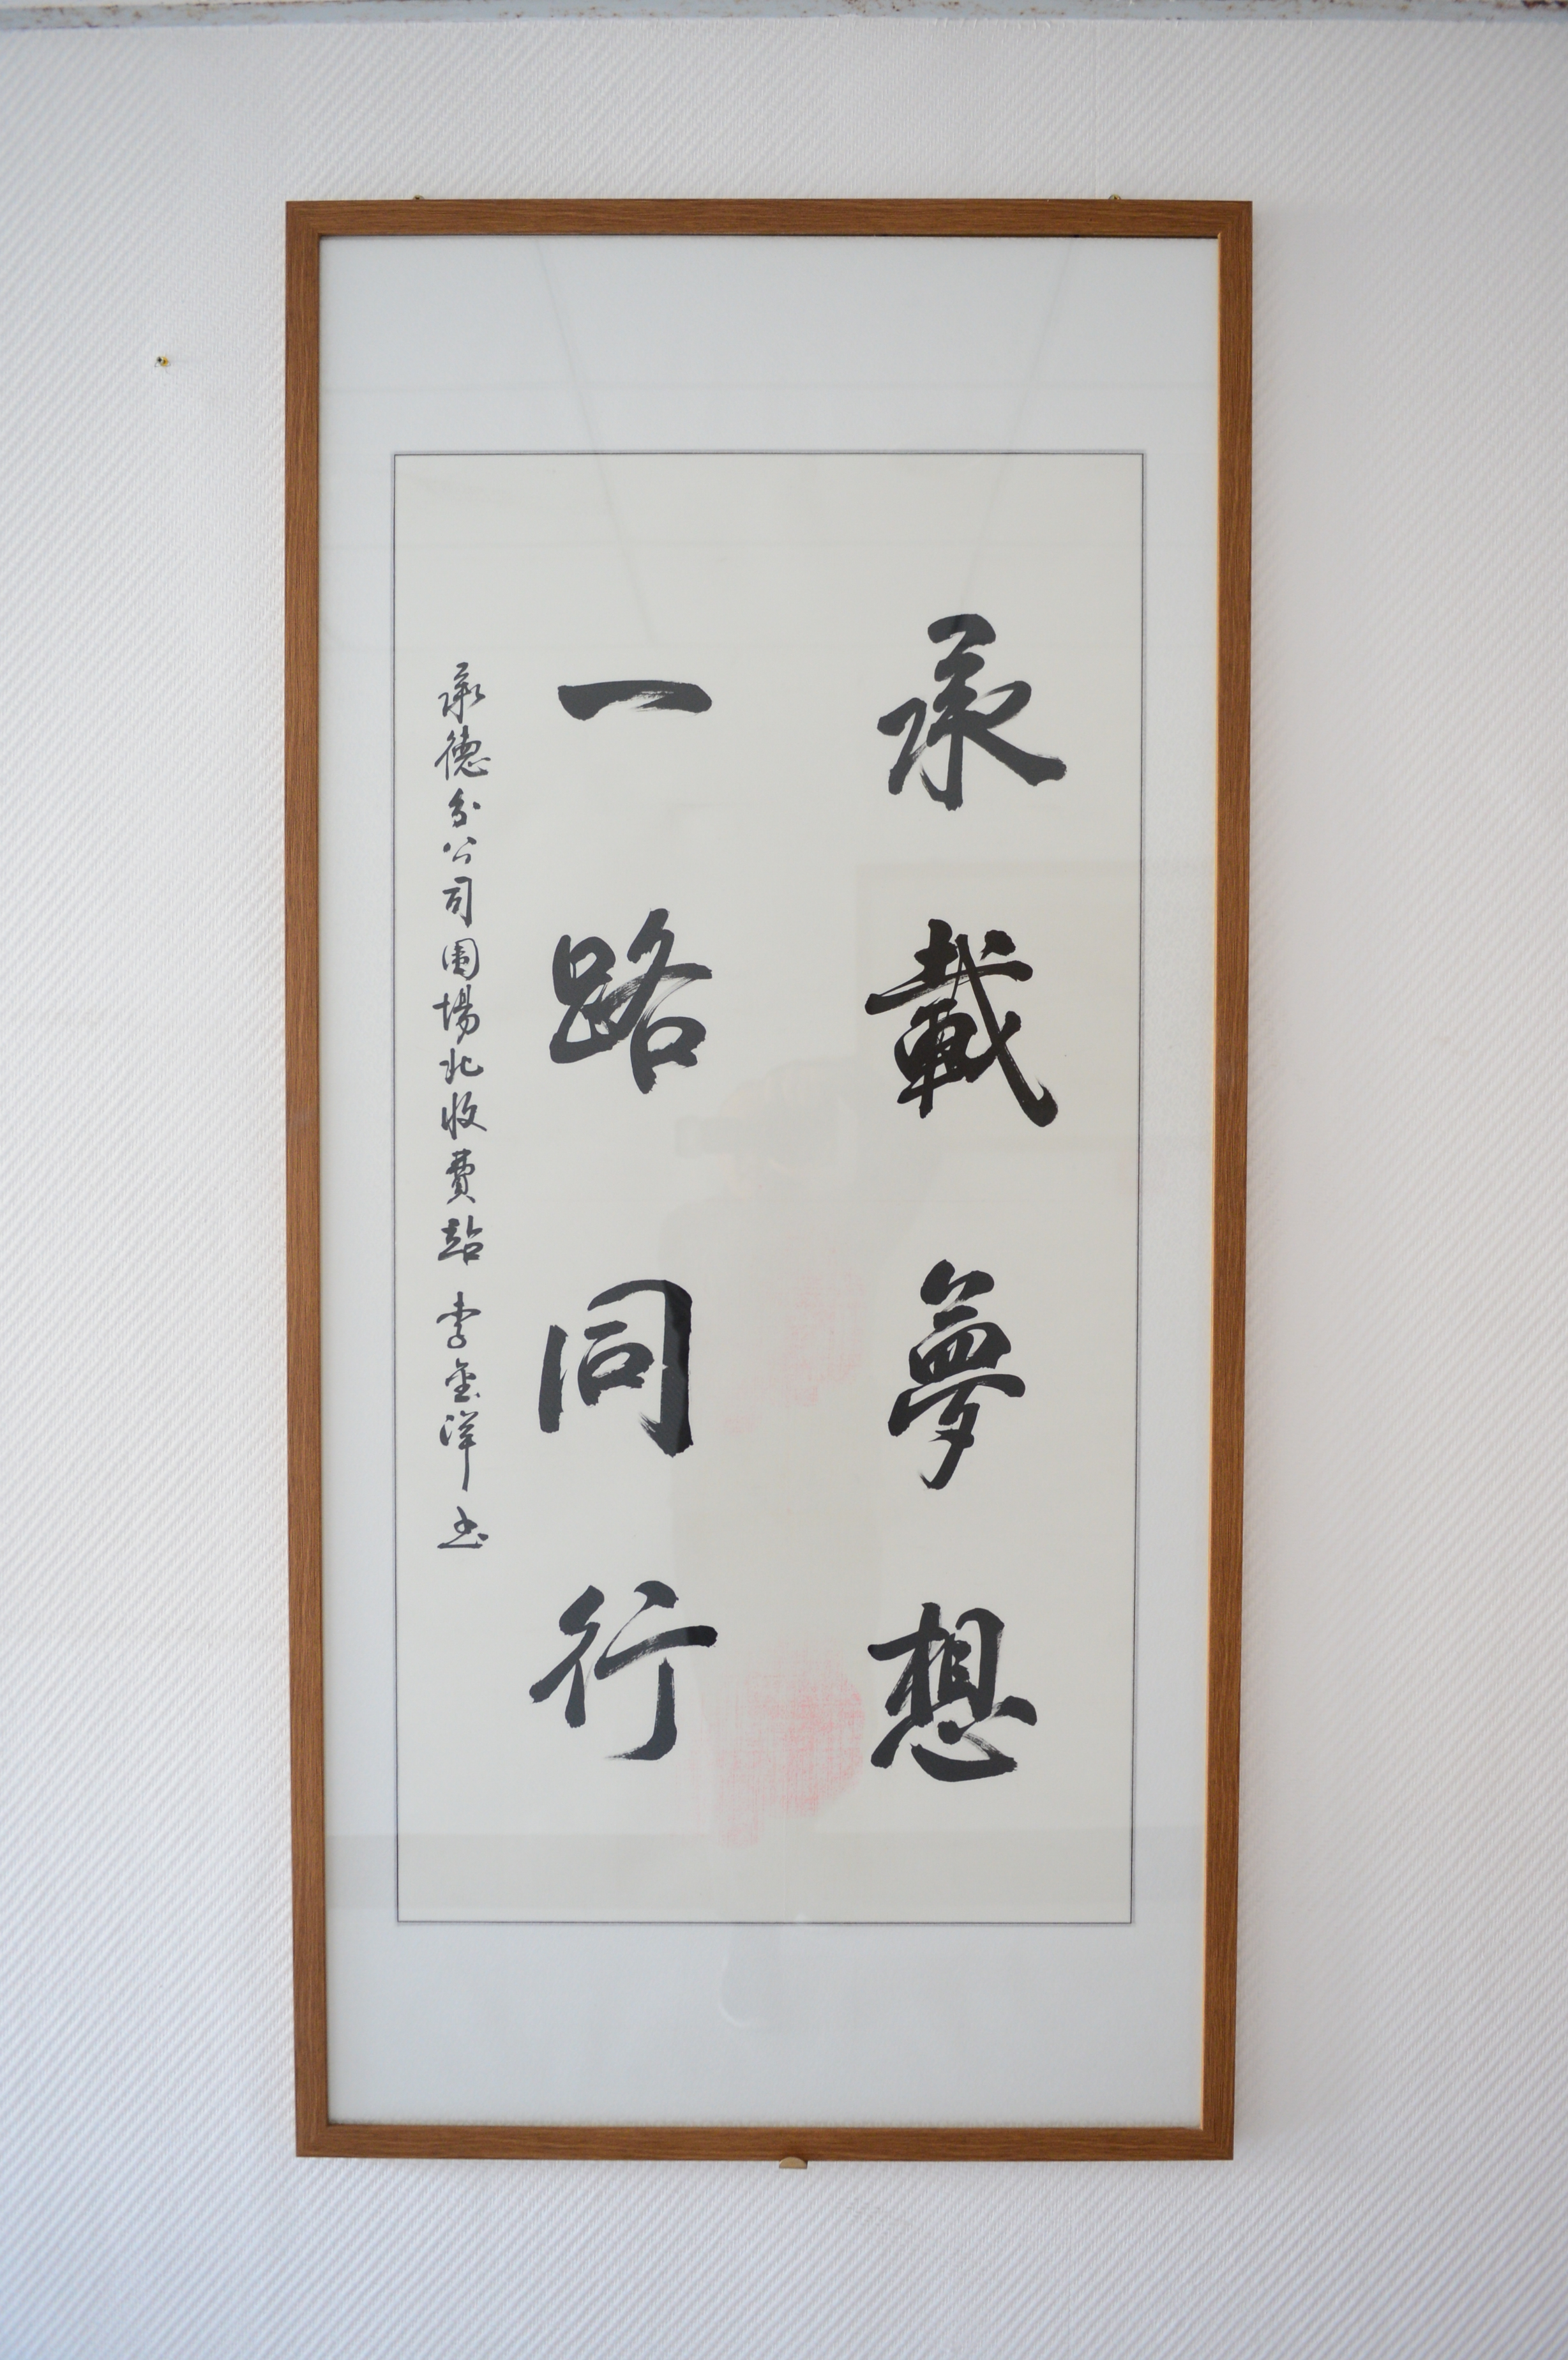 承載夢想
一路同行
承德分公司圍場北收費站 李金洋书